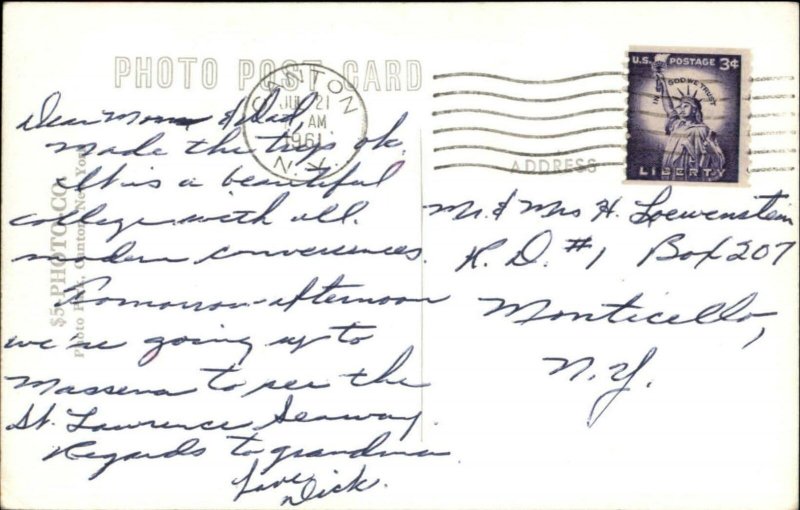 PHOTO POST CARD
CANTON
JUL 21
AM
1961
N.Y.
U.S. POSTAGE 3¢
IN GOD WE TRUST
LIBERTY
ADDRESS
$5-PHOTO CO.
Photo Park, Canton, New York
Dear Mom & Dad,
Made the trip ok.
It is a beautiful
college with all
modern conveniences.
Tomorrow afternoon
we're going up to
Massena to see the
St. Lawrence Seaway.
Regards to grandma
Love,
Dick.
Mr. & Mrs H. Loewenstein
R. D. #1 Box 207
Monticello,
N.Y.